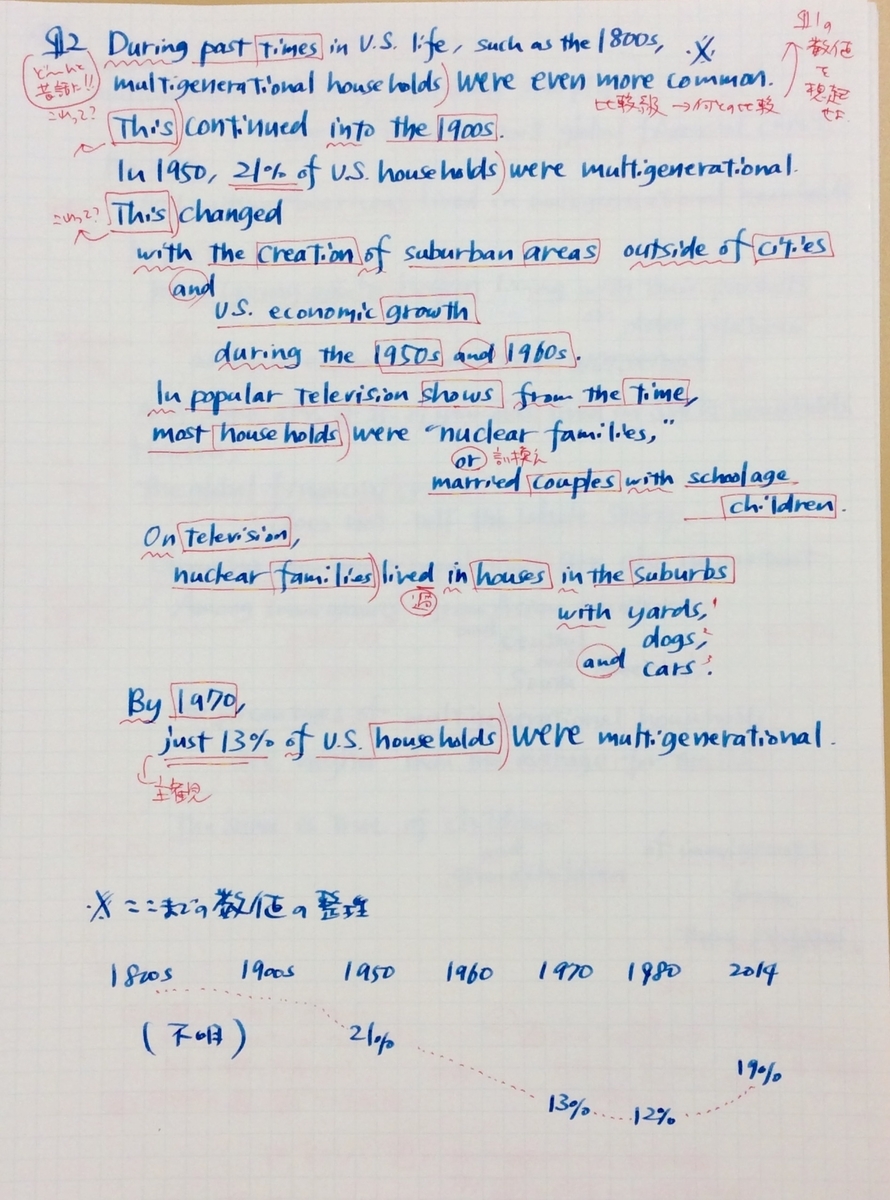 §2 During past times in U.S. life, such as the 1800s, ※
§1の
数値
を
想起
せよ
どーんと
昔話に!!
multigenerational households) were even more common.
比較級 →何との比較
これって?
This) continued into the 1900s.
In 1950, 21% of U.S. households) were multigenerational.
これって?
This) changed
with the creation of suburban areas outside of cities
and
U.S. economic growth
during the 1950s and 1960s.
In popular television shows from the time,
most households) were "nuclear families,"
or 言い換え
married couples with school age
children.
On television,
nuclear families) lived in houses in the suburbs
過
with yards,1
dogs,2
and cars3.
By 1970,
just 13% of U.S. households) were multigenerational.
主観
※ ここまでの数値の整理
1800s 1900s 1950 1960 1970 1980 2014
(不明) 21%
19%
13% 12%